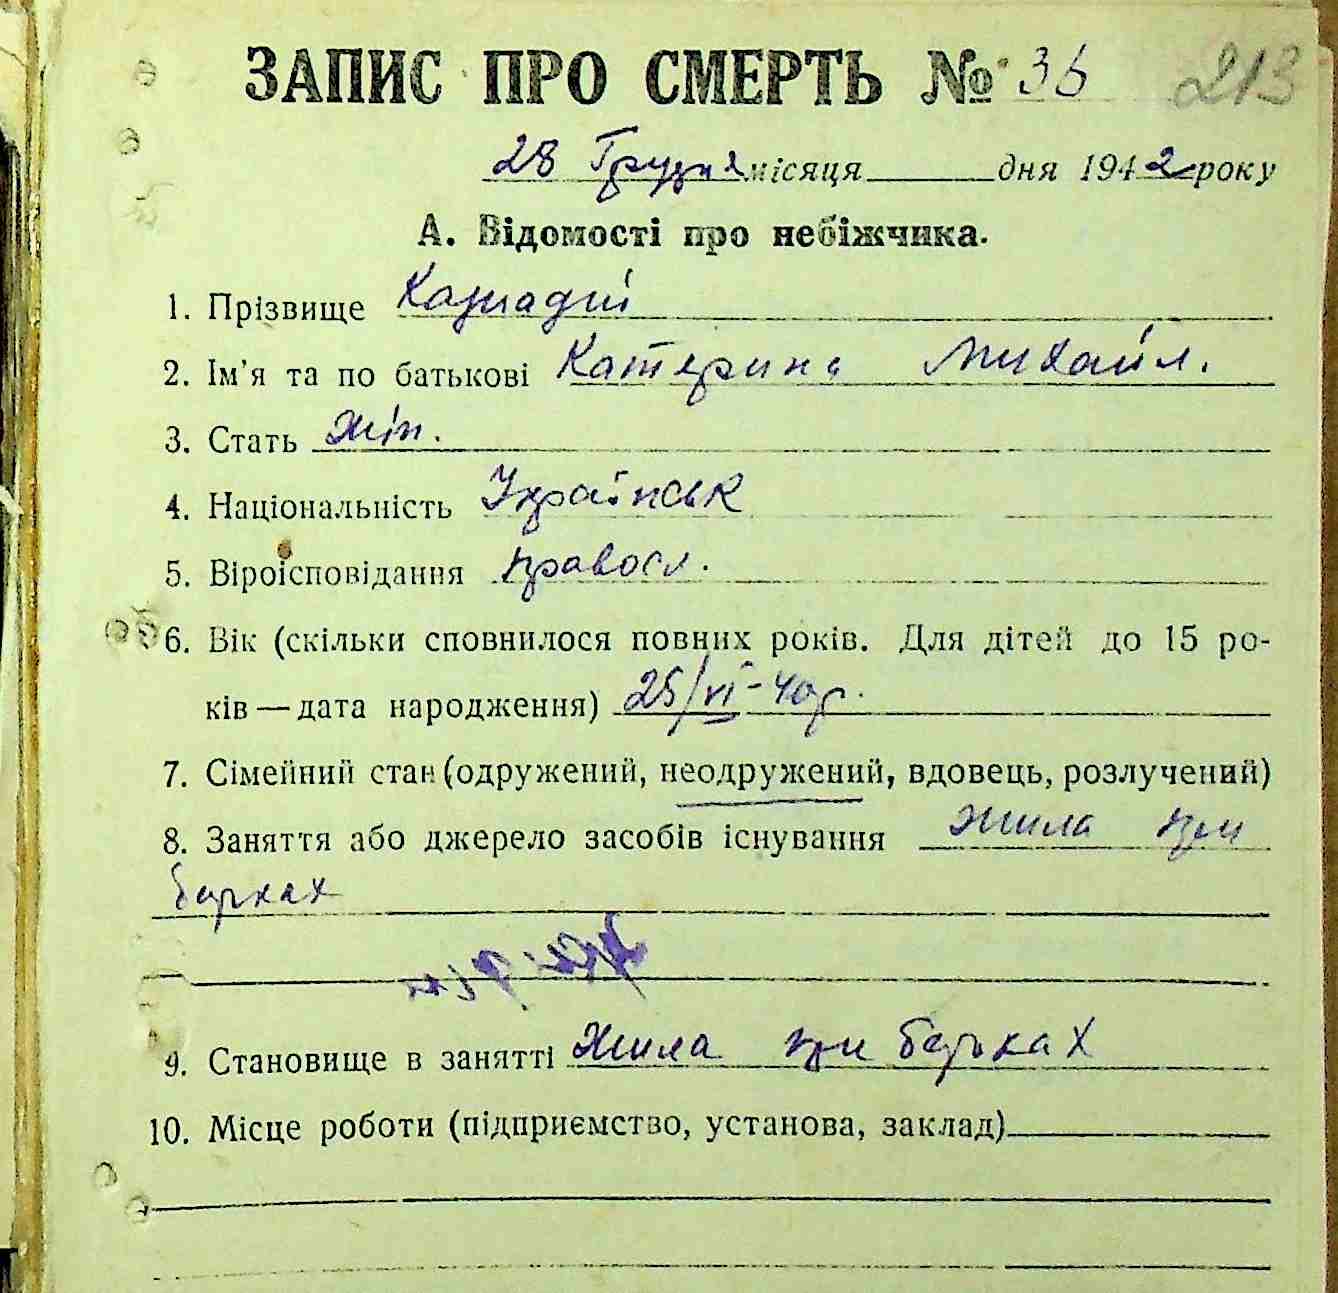 ЗАПИС ПРО СМЕРТЬ № 36 213
28 Грудня місяця дня 1942 року
А. Відомості про небіжчика.
1. Прізвище
2. Ім'я та по батькові Катерина Михайл.
3. Стать жін.
4. Національність Українськ
5. Віроісповідання правосл.
6. Вік (скільки сповнилося повних років. Для дітей до 15 ро-
ків — дата народження) 25/VI-40р.
7. Сімейний стан (одружений, неодружений, вдовець, розлучений)
8. Заняття або джерело засобів існування жила при
батьках
9. Становище в занятті Жила при батьках
10. Місце роботи (підприємство, установа, заклад)